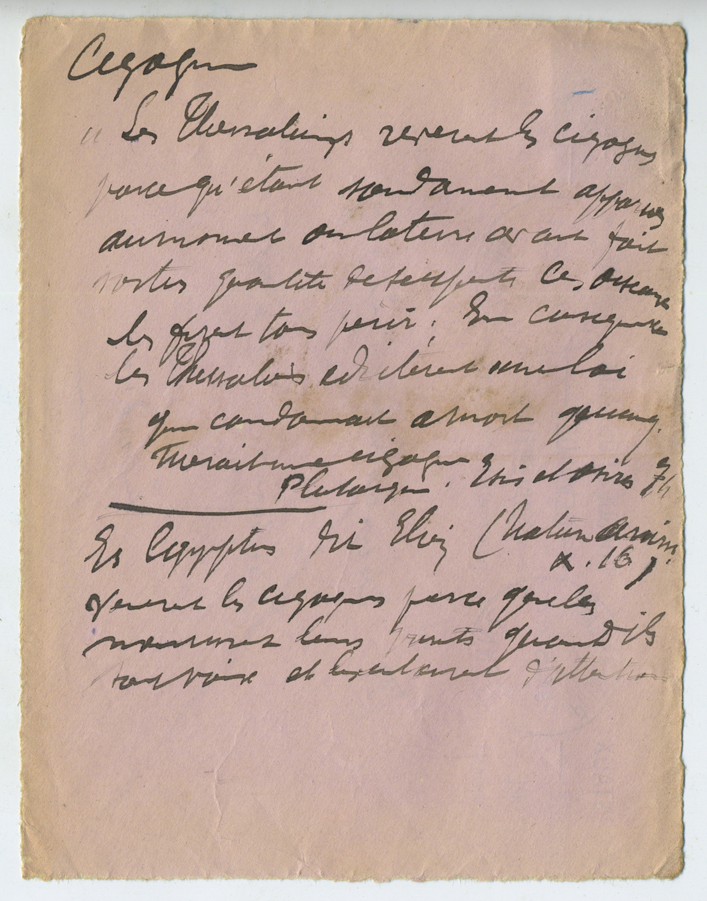 Cigogne
" Les Thessaliens révèrent les cigognes
parce qu'étant soudainement apparues
au moment où la terre avait fait
sortir quantité de serpents ces oiseaux
les firent tous périr. En conséquence
les Thessaliens édictèrent une loi
qui condamnait à mort quiconq.
tuerait une cigogne "
Plutarque. Isis et Osiris 74
Les Egyptiens dit Elien (Natur. anim.
X. 16)
vénèrent les cigognes parce qu'elles
nourrissent leurs parents quand ils
sont vieux et les entourent d'attentions